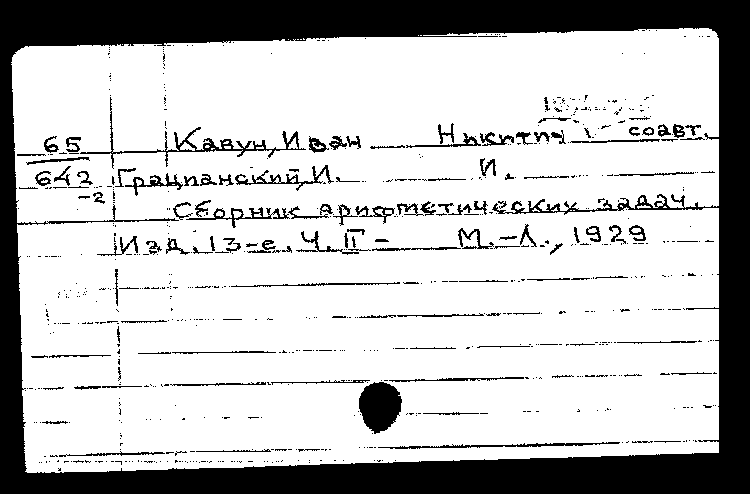 65 Кавун, Иван Никитич соавт.
642 Грацианский, И. И.
-2 Сборник арифметических задач.
Изд. 13-е. Ч. II - М.-Л., 1929